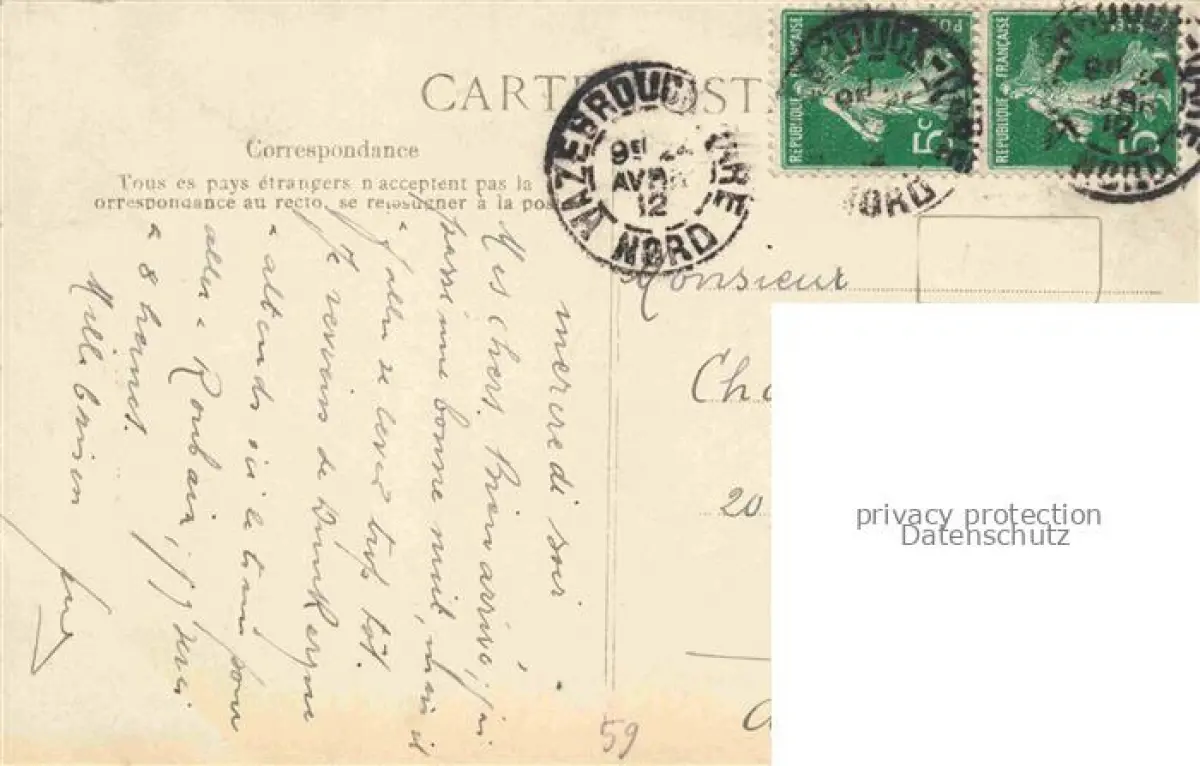 CARTE POST
Correspondance
Tous es pays étrangers n'acceptent pas la
orrespondance au recto, se renseigner à la pos
HAZEBROUCK GARE
9E 24
AVRIL
12
NORD
RÉPUBLIQUE FRANÇAISE
5c
RÉPUBLIQUE FRANÇAISE
5c
NORD
NORD
mercredi soir
Mes chers. Bien arrivé, j'ai
passé une bonne nuit, mais il
a fallu se lever trop tôt.
Je reviens de Dunkerque
& attends ici le train pour
aller à Roubaix, j'y serai
à 8 heures.
Mille baisers
Monsieur
Cha
20
59
privacy protection
Datenschutz